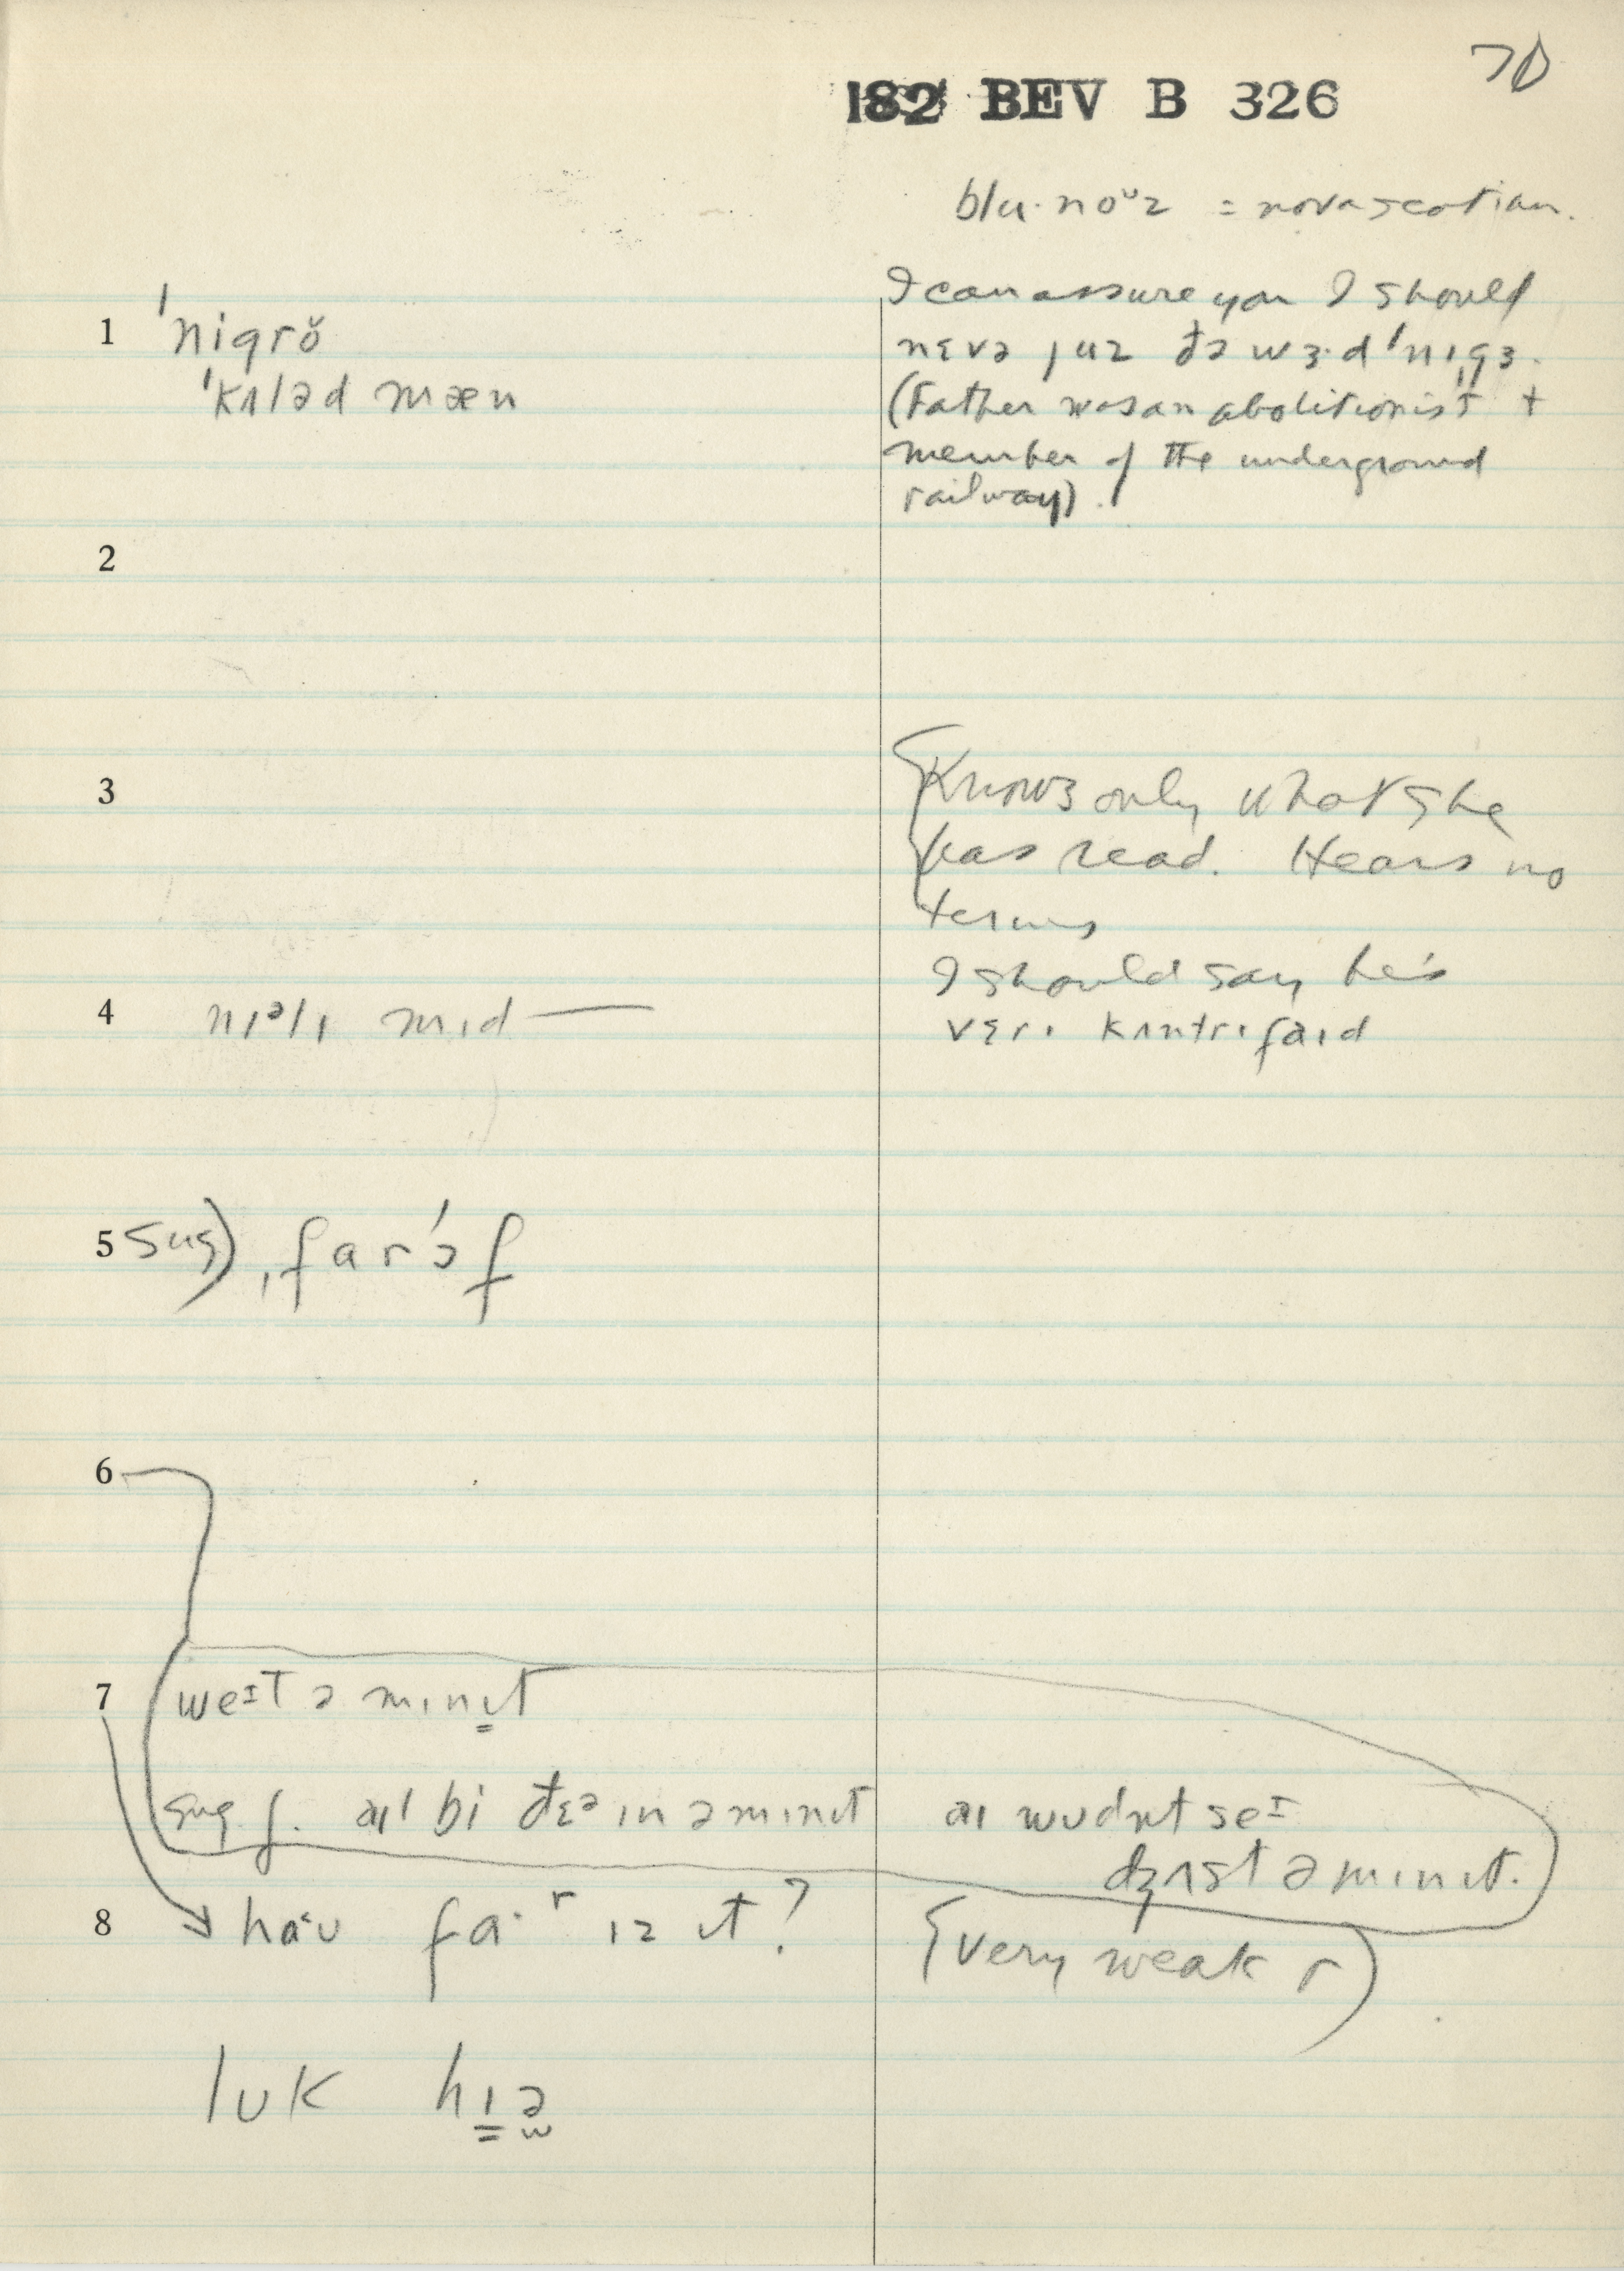 70
182 BEV B 326
blu·noᶷz = novascotian.
1 ˈnigrŏ
ˈkʌləd mæn
I can assure you I should
nɛvə juz đə wɜ·d ˈnɪgɜ.
(Father was an abolitionist +
member of the underground
railway).
2
3
Knows only what she
has read. Hears no
terms
4 nɪᵊlɪ mɪd —
I should say he's
vɛrɪ kʌntrɪfaɪd
5 sug) ˌfarˈɔf
6
7 weᴵt ə mɪnɪt
sug f. aɪl bi đɛᵊ ɪn ə mɪnɪt
aɪ wʊdnt seᴵ
dʒʌst ə mɪnɪt.
8 haʊ fa·ʳ ɪz ɪt?
(very weak r)
lʊk hɪə